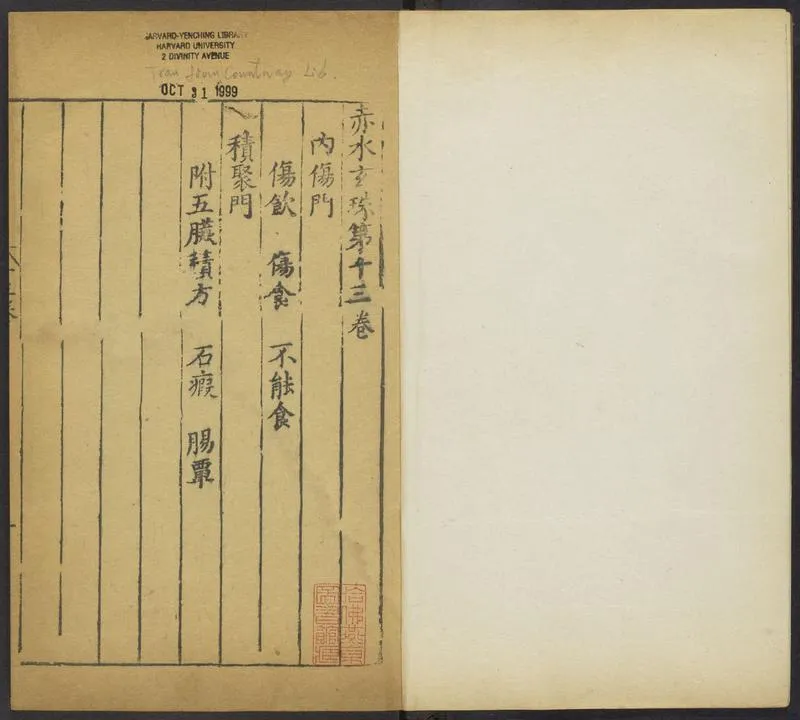 HARVARD-YENCHING LIBRARY
HARVARD UNIVERSITY
2 DIVINITY AVENUE
Tran from Countway Lib.
OCT 31 1999
赤水玄珠第十三卷
內傷門
傷飲 傷食 不能食
積聚門
附五臟積方 石瘕 腸覃
哈佛燕京
圖書館藏